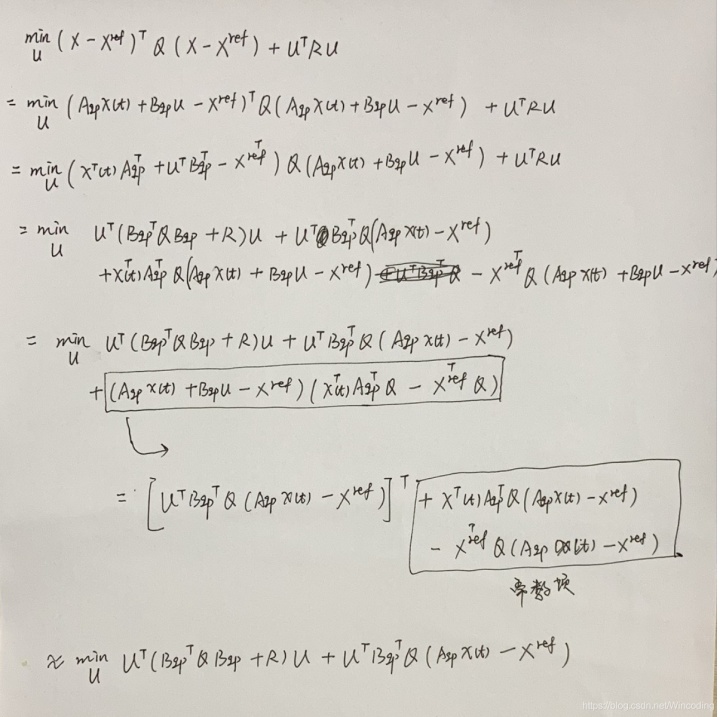 min_U (X − X^ref)^T Q (X − X^ref) + U^T R U
= min_U (A_qp X(t) + B_qp U − X^ref)^T Q (A_qp X(t) + B_qp U − X^ref) + U^T R U
= min_U (X^T(t) A_qp^T + U^T B_qp^T − X^ref^T) Q (A_qp X(t) + B_qp U − X^ref) + U^T R U
= min_U U^T (B_qp^T Q B_qp + R) U + U^T B_qp^T Q (A_qp X(t) − X^ref)
+ X^T(t) A_qp^T Q (A_qp X(t) + B_qp U − X^ref) − X^ref^T Q (A_qp X(t) + B_qp U − X^ref)
= min_U U^T (B_qp^T Q B_qp + R) U + U^T B_qp^T Q (A_qp X(t) − X^ref)
+ (A_qp X(t) + B_qp U − X^ref) (X^T(t) A_qp^T Q − X^ref^T Q)
= [U^T B_qp^T Q (A_qp X(t) − X^ref)]^T + X^T(t) A_qp^T Q (A_qp X(t) − X^ref)
− X^ref^T Q (A_qp X(t) − X^ref)
常数项
≈ min_U U^T (B_qp^T Q B_qp + R) U + U^T B_qp^T Q (A_qp X(t) − X^ref)
https://blog.csdn.net/Wincoding